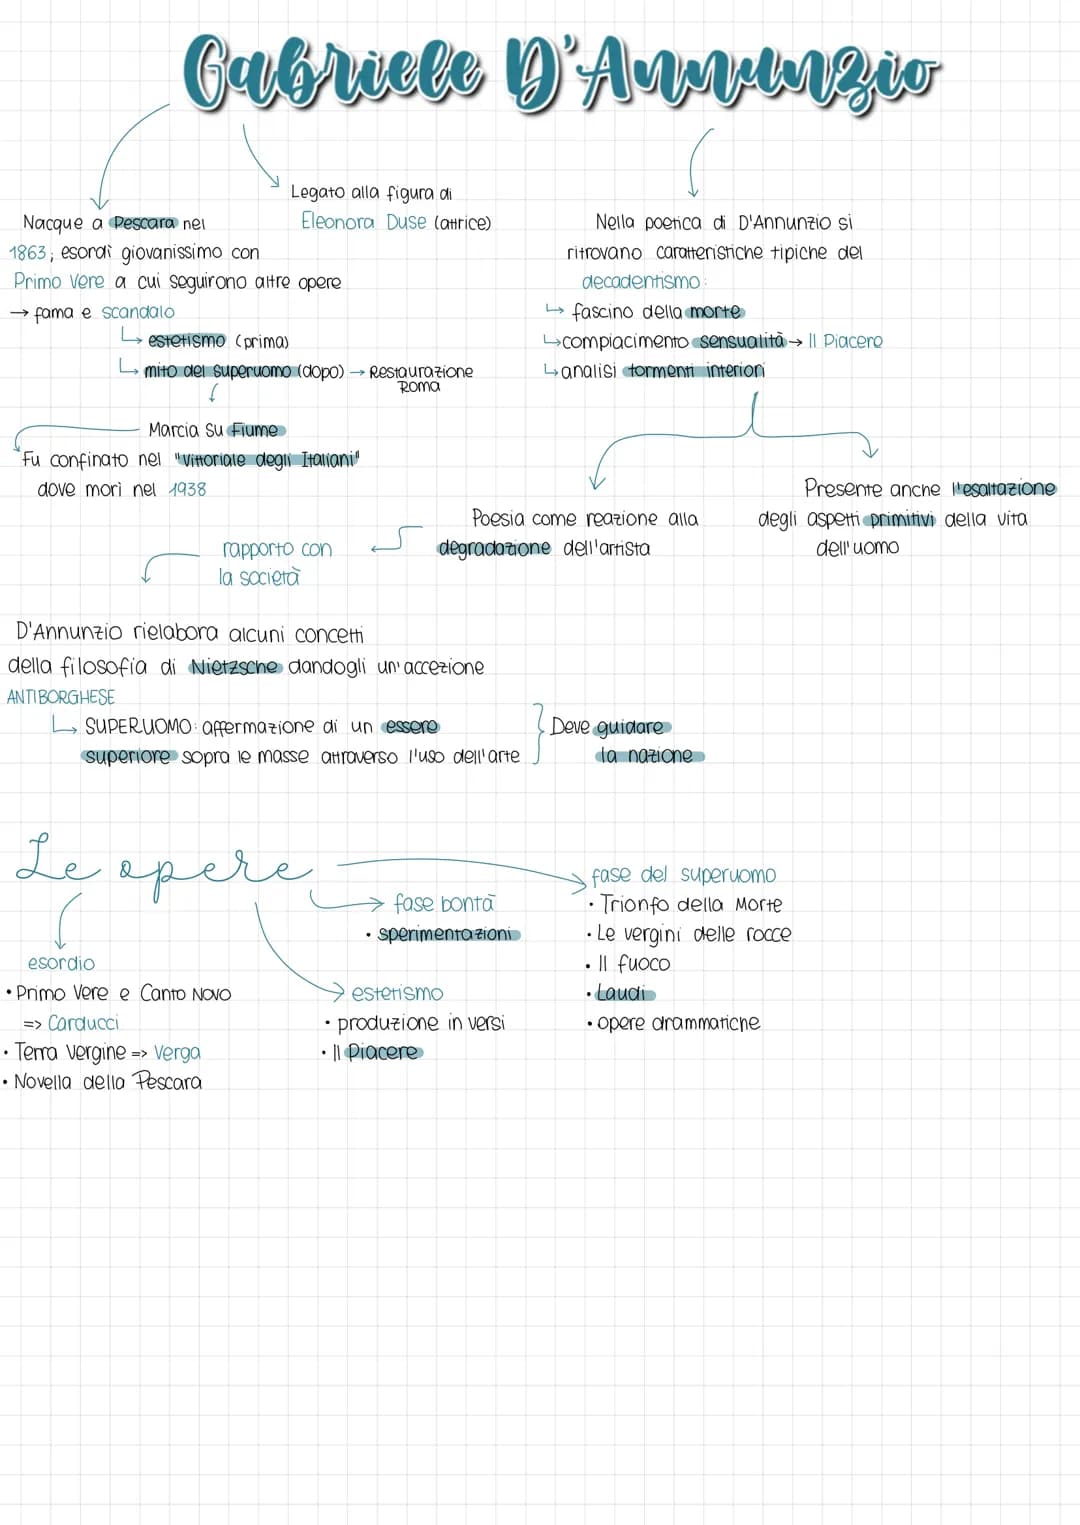 Gabriele D'Annunzio
Nacque a Pescara nel
1863, esordì giovanissimo con
Primo Vere a cui seguirono altre opere
→ fama e scandalo
↳ estetismo (prima)
↳ mito del superuomo (dopo) → Restaurazione
Roma
Marcia su Fiume
Fu confinato nel "Vittoriale degli Italiani"
dove morì nel 1938
Legato alla figura di
Eleonora Duse (attrice)
Nella poetica di D'Annunzio si
ritrovano caratteristiche tipiche del
decadentismo:
↳ fascino della morte
↳ compiacimento sensualità → Il Piacere
↳ analisi tormenti interiori
Poesia come reazione alla
degradazione dell'artista
Presente anche l'esaltazione
degli aspetti primitivi della vita
dell'uomo
rapporto con
la società
D'Annunzio rielabora alcuni concetti
della filosofia di Nietzsche dandogli un'accezione
ANTIBORGHESE
↳ SUPERUOMO: affermazione di un essere
superiore sopra le masse attraverso l'uso dell'arte
Deve guidare
la nazione
Le opere
esordio
• Primo Vere e Canto Novo
=> Carducci
• Terra Vergine => Verga
• Novella della Pescara
estetismo
• produzione in versi
• Il Piacere
fase bontà
• sperimentazioni
fase del superuomo
• Trionfo della Morte
• Le vergini delle rocce
• Il fuoco
• Laudi
• opere drammatiche